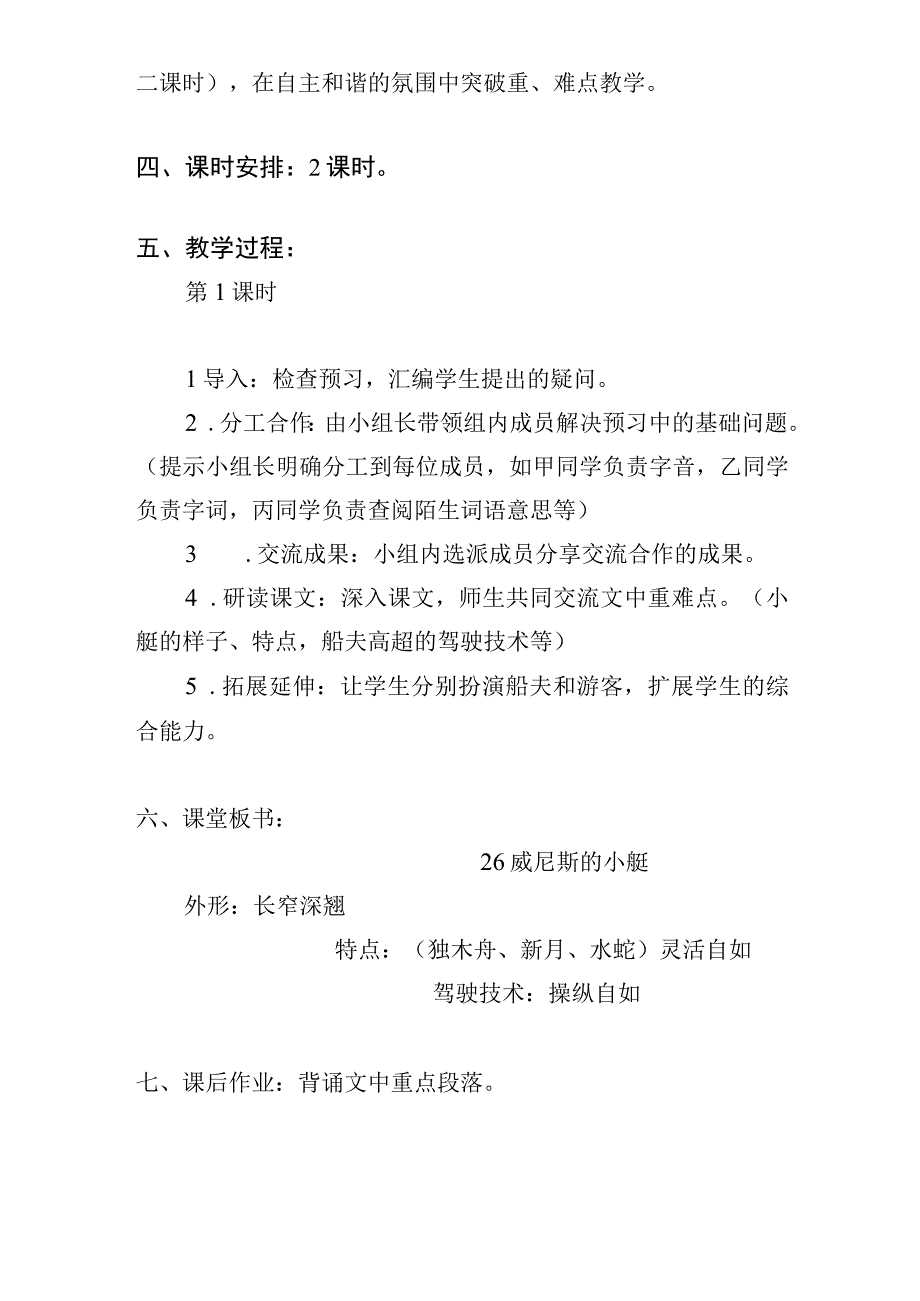 二课时），在自主和谐的氛围中突破重、难点教学。
四、课时安排：2课时。
五、教学过程：
第1课时
1导入：检查预习，汇编学生提出的疑问。
2 .分工合作：由小组长带领组内成员解决预习中的基础问题。
（提示小组长明确分工到每位成员，如甲同学负责字音，乙同学
负责字词，丙同学负责查阅陌生词语意思等）
3 .交流成果：小组内选派成员分享交流合作的成果。
4 .研读课文：深入课文，师生共同交流文中重难点。（小
艇的样子、特点，船夫高超的驾驶技术等）
5 .拓展延伸：让学生分别扮演船夫和游客，扩展学生的综
合能力。
六、课堂板书：
26威尼斯的小艇
外形：长窄深翘
特点：（独木舟、新月、水蛇）灵活自如
驾驶技术：操纵自如
七、课后作业：背诵文中重点段落。